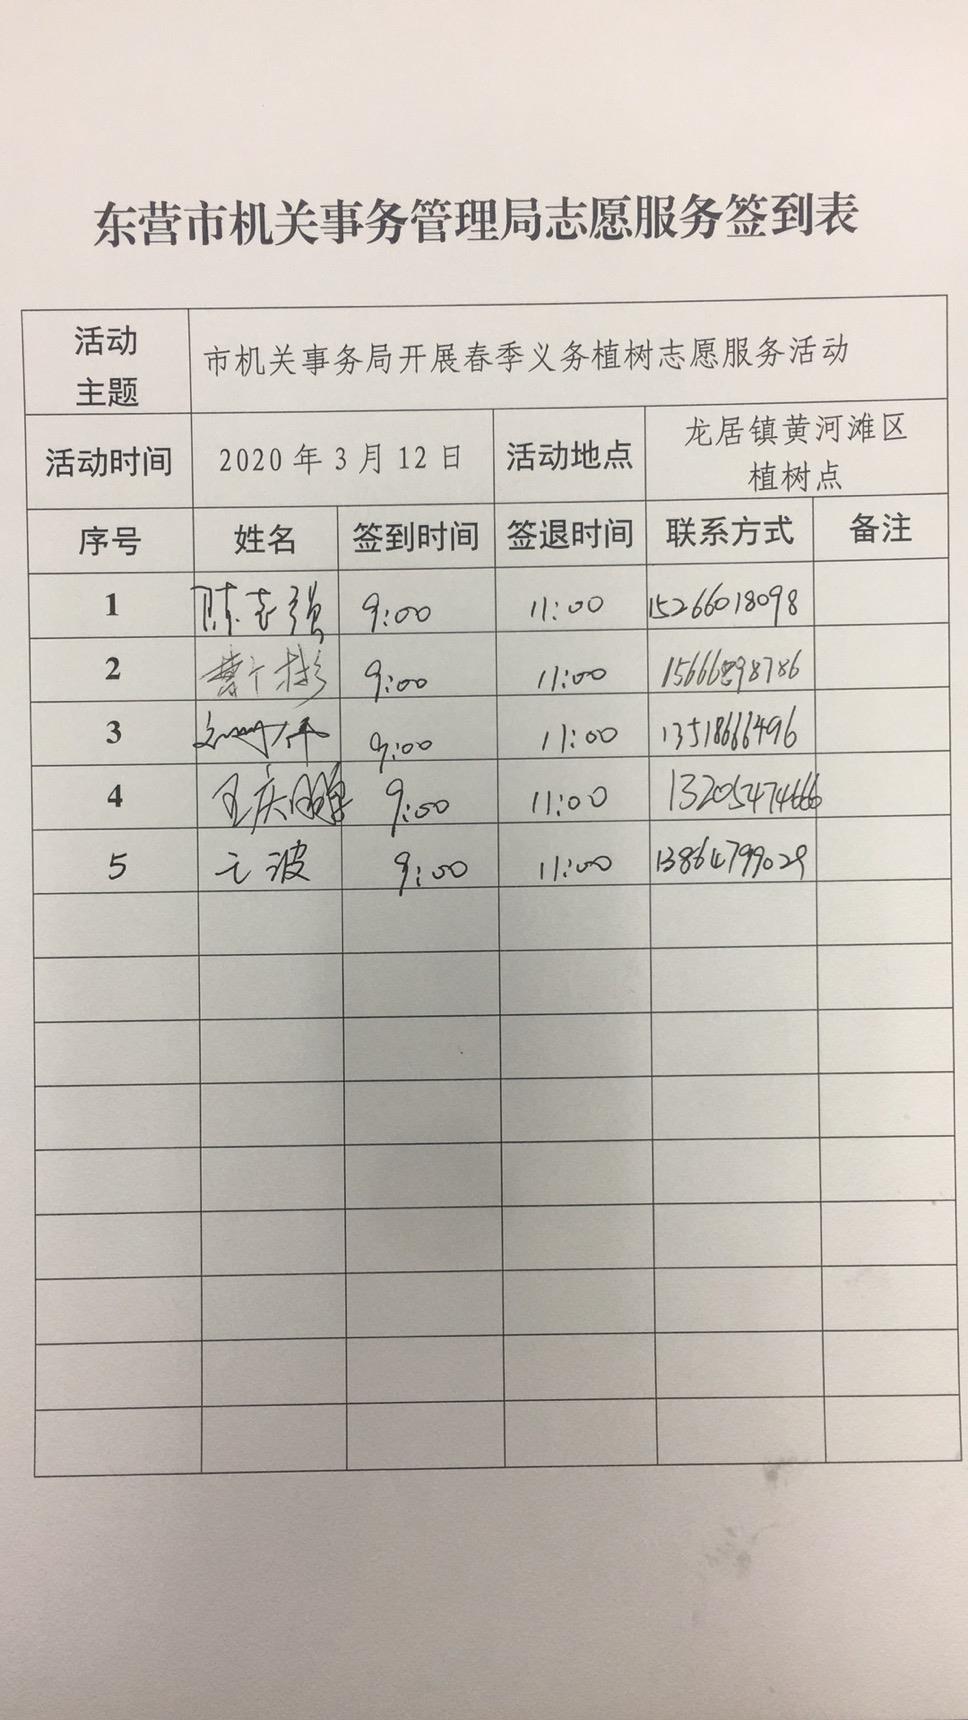 东营市机关事务管理局志愿服务签到表
活动
主题
市机关事务局开展春季义务植树志愿服务活动
活动时间 2020年3月12日 活动地点 龙居镇黄河滩区
植树点
序号 姓名 签到时间 签退时间 联系方式 备注
1 陈志强 9:00 11:00 15266018098
2 9:00 11:00 15666898786
3 9:00 11:00 13518666496
4 王庆鹏 9:00 11:00 13205474666
5 波 9:00 11:00 13864799029